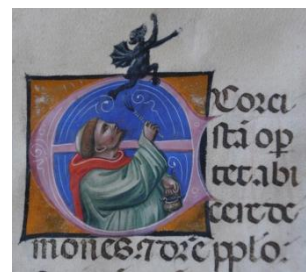 Exorci
stā op
tet abi
cere de
mones. ⁊ dr̄e pplo: